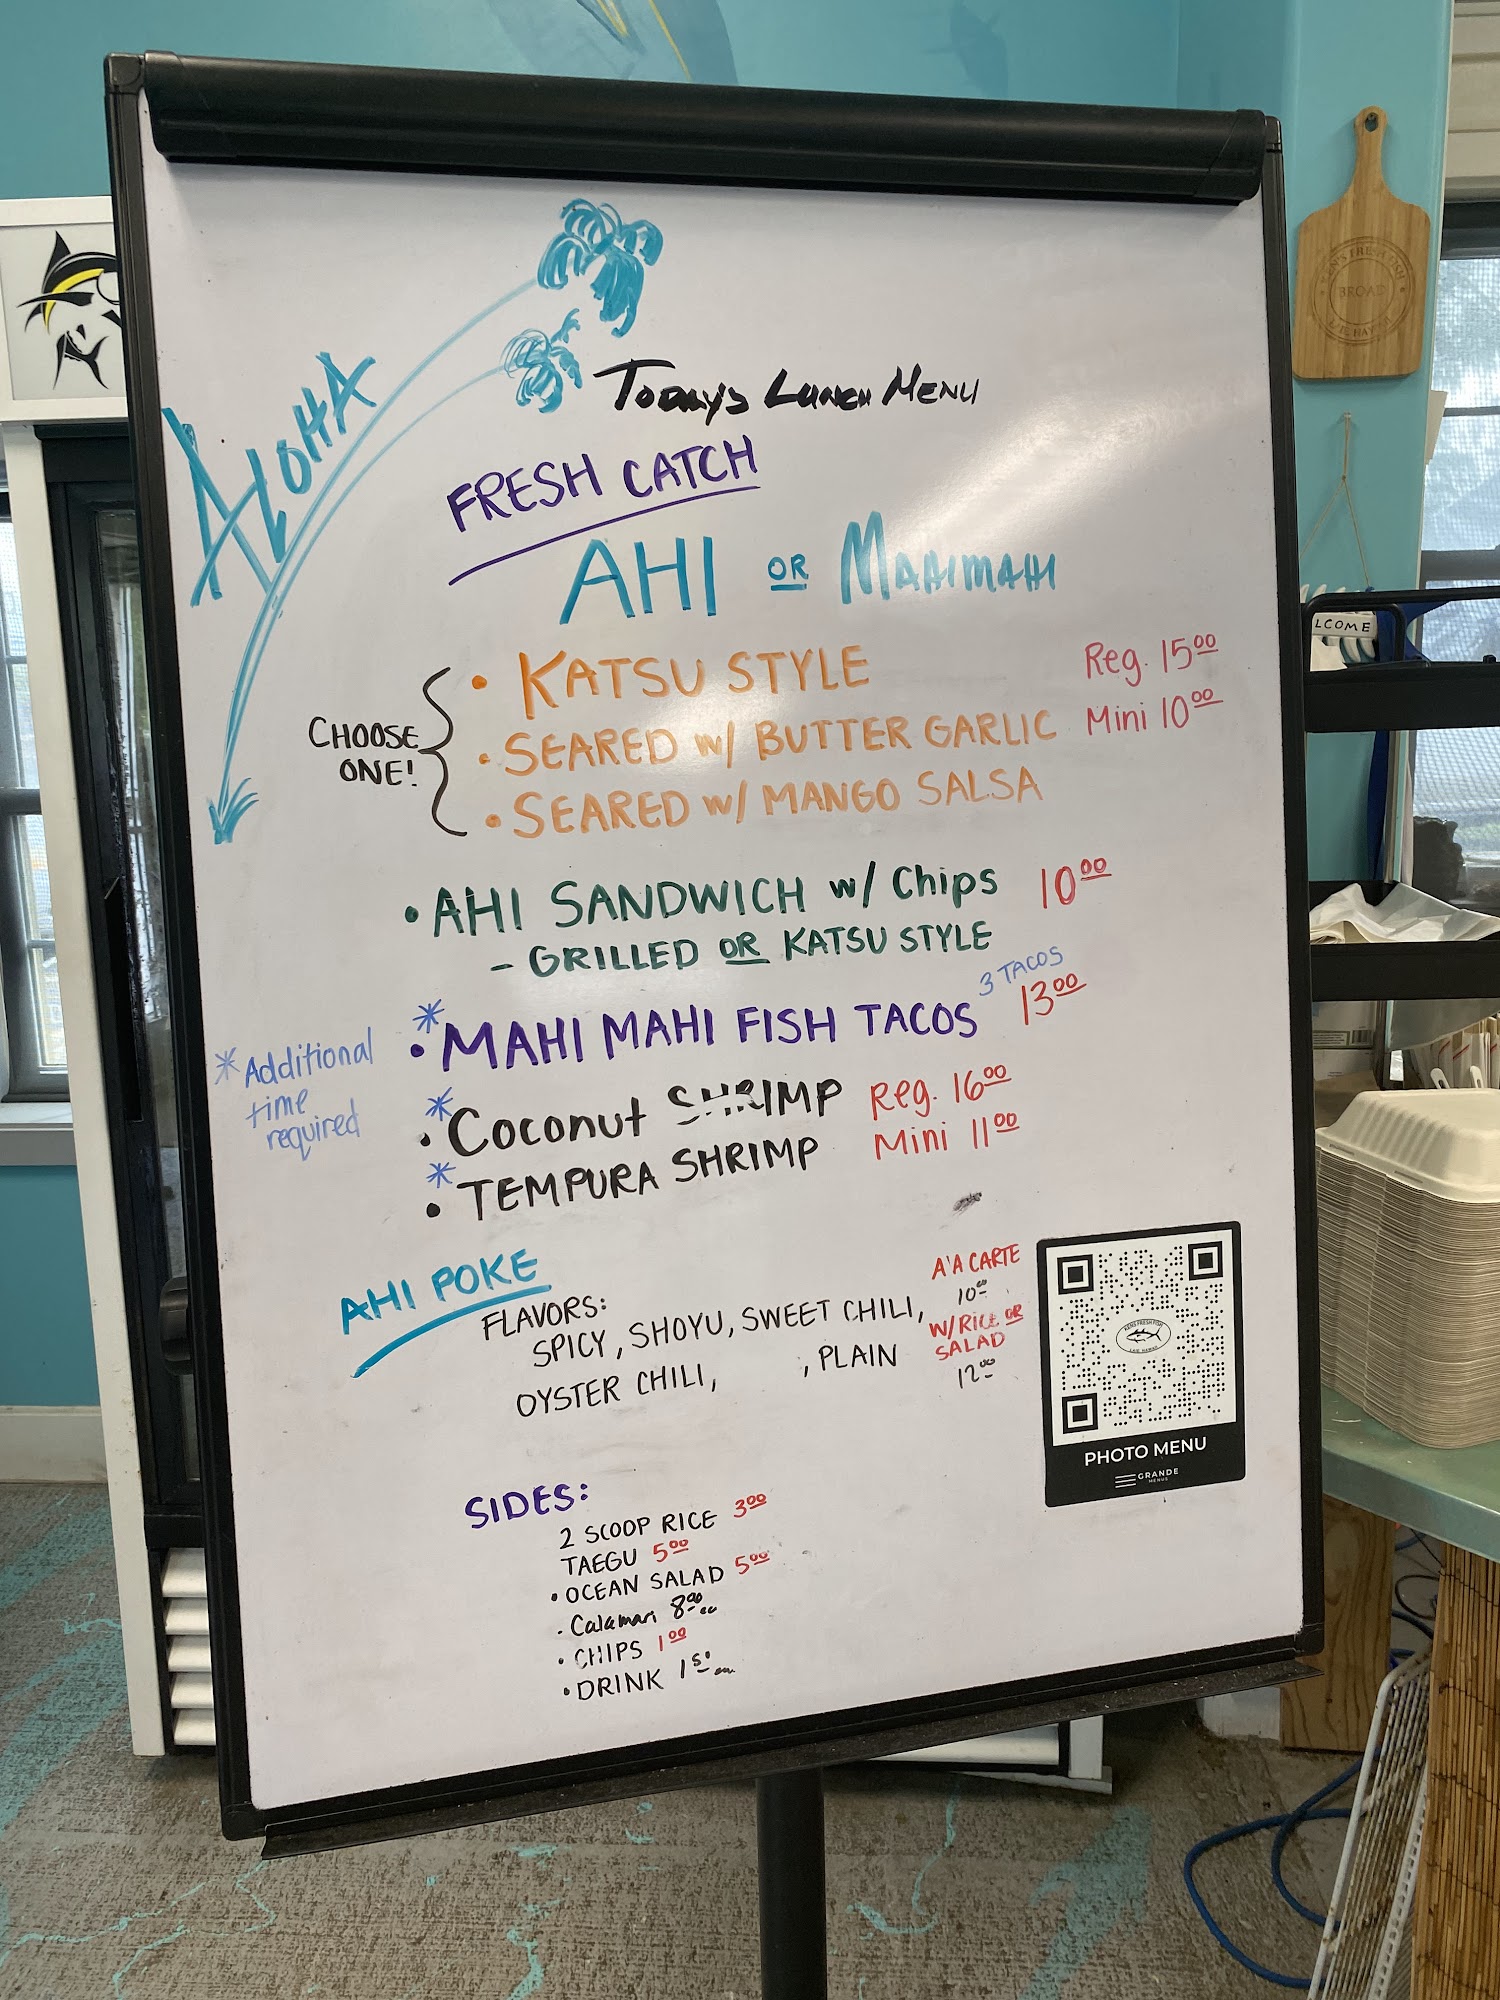 ALOHA
TODAY'S LUNCH MENU
FRESH CATCH
AHI OR MAHIMAHI
CHOOSE ONE!
• KATSU STYLE Reg. 15.00
• SEARED w/ BUTTER GARLIC Mini 10.00
• SEARED w/ MANGO SALSA
• AHI SANDWICH w/ Chips 10.00
- GRILLED OR KATSU STYLE
* Additional time required
*• MAHI MAHI FISH TACOS 3 TACOS 13.00
*• Coconut SHRIMP Reg. 16.00
*• TEMPURA SHRIMP Mini 11.00
AHI POKE
FLAVORS:
SPICY, SHOYU, SWEET CHILI,
OYSTER CHILI, , PLAIN
A'A CARTE
10.00
W/RICE OR
SALAD
12.00
PHOTO MENU
GRANDE
MENUS
SIDES:
2 SCOOP RICE 3.00
TAEGU 5.00
• OCEAN SALAD 5.00
• Calamari 8.00
• CHIPS 1.00
• DRINK 1.50
KEN'S FRESH FISH
BROAD
LAIE HAWAII
LCOME